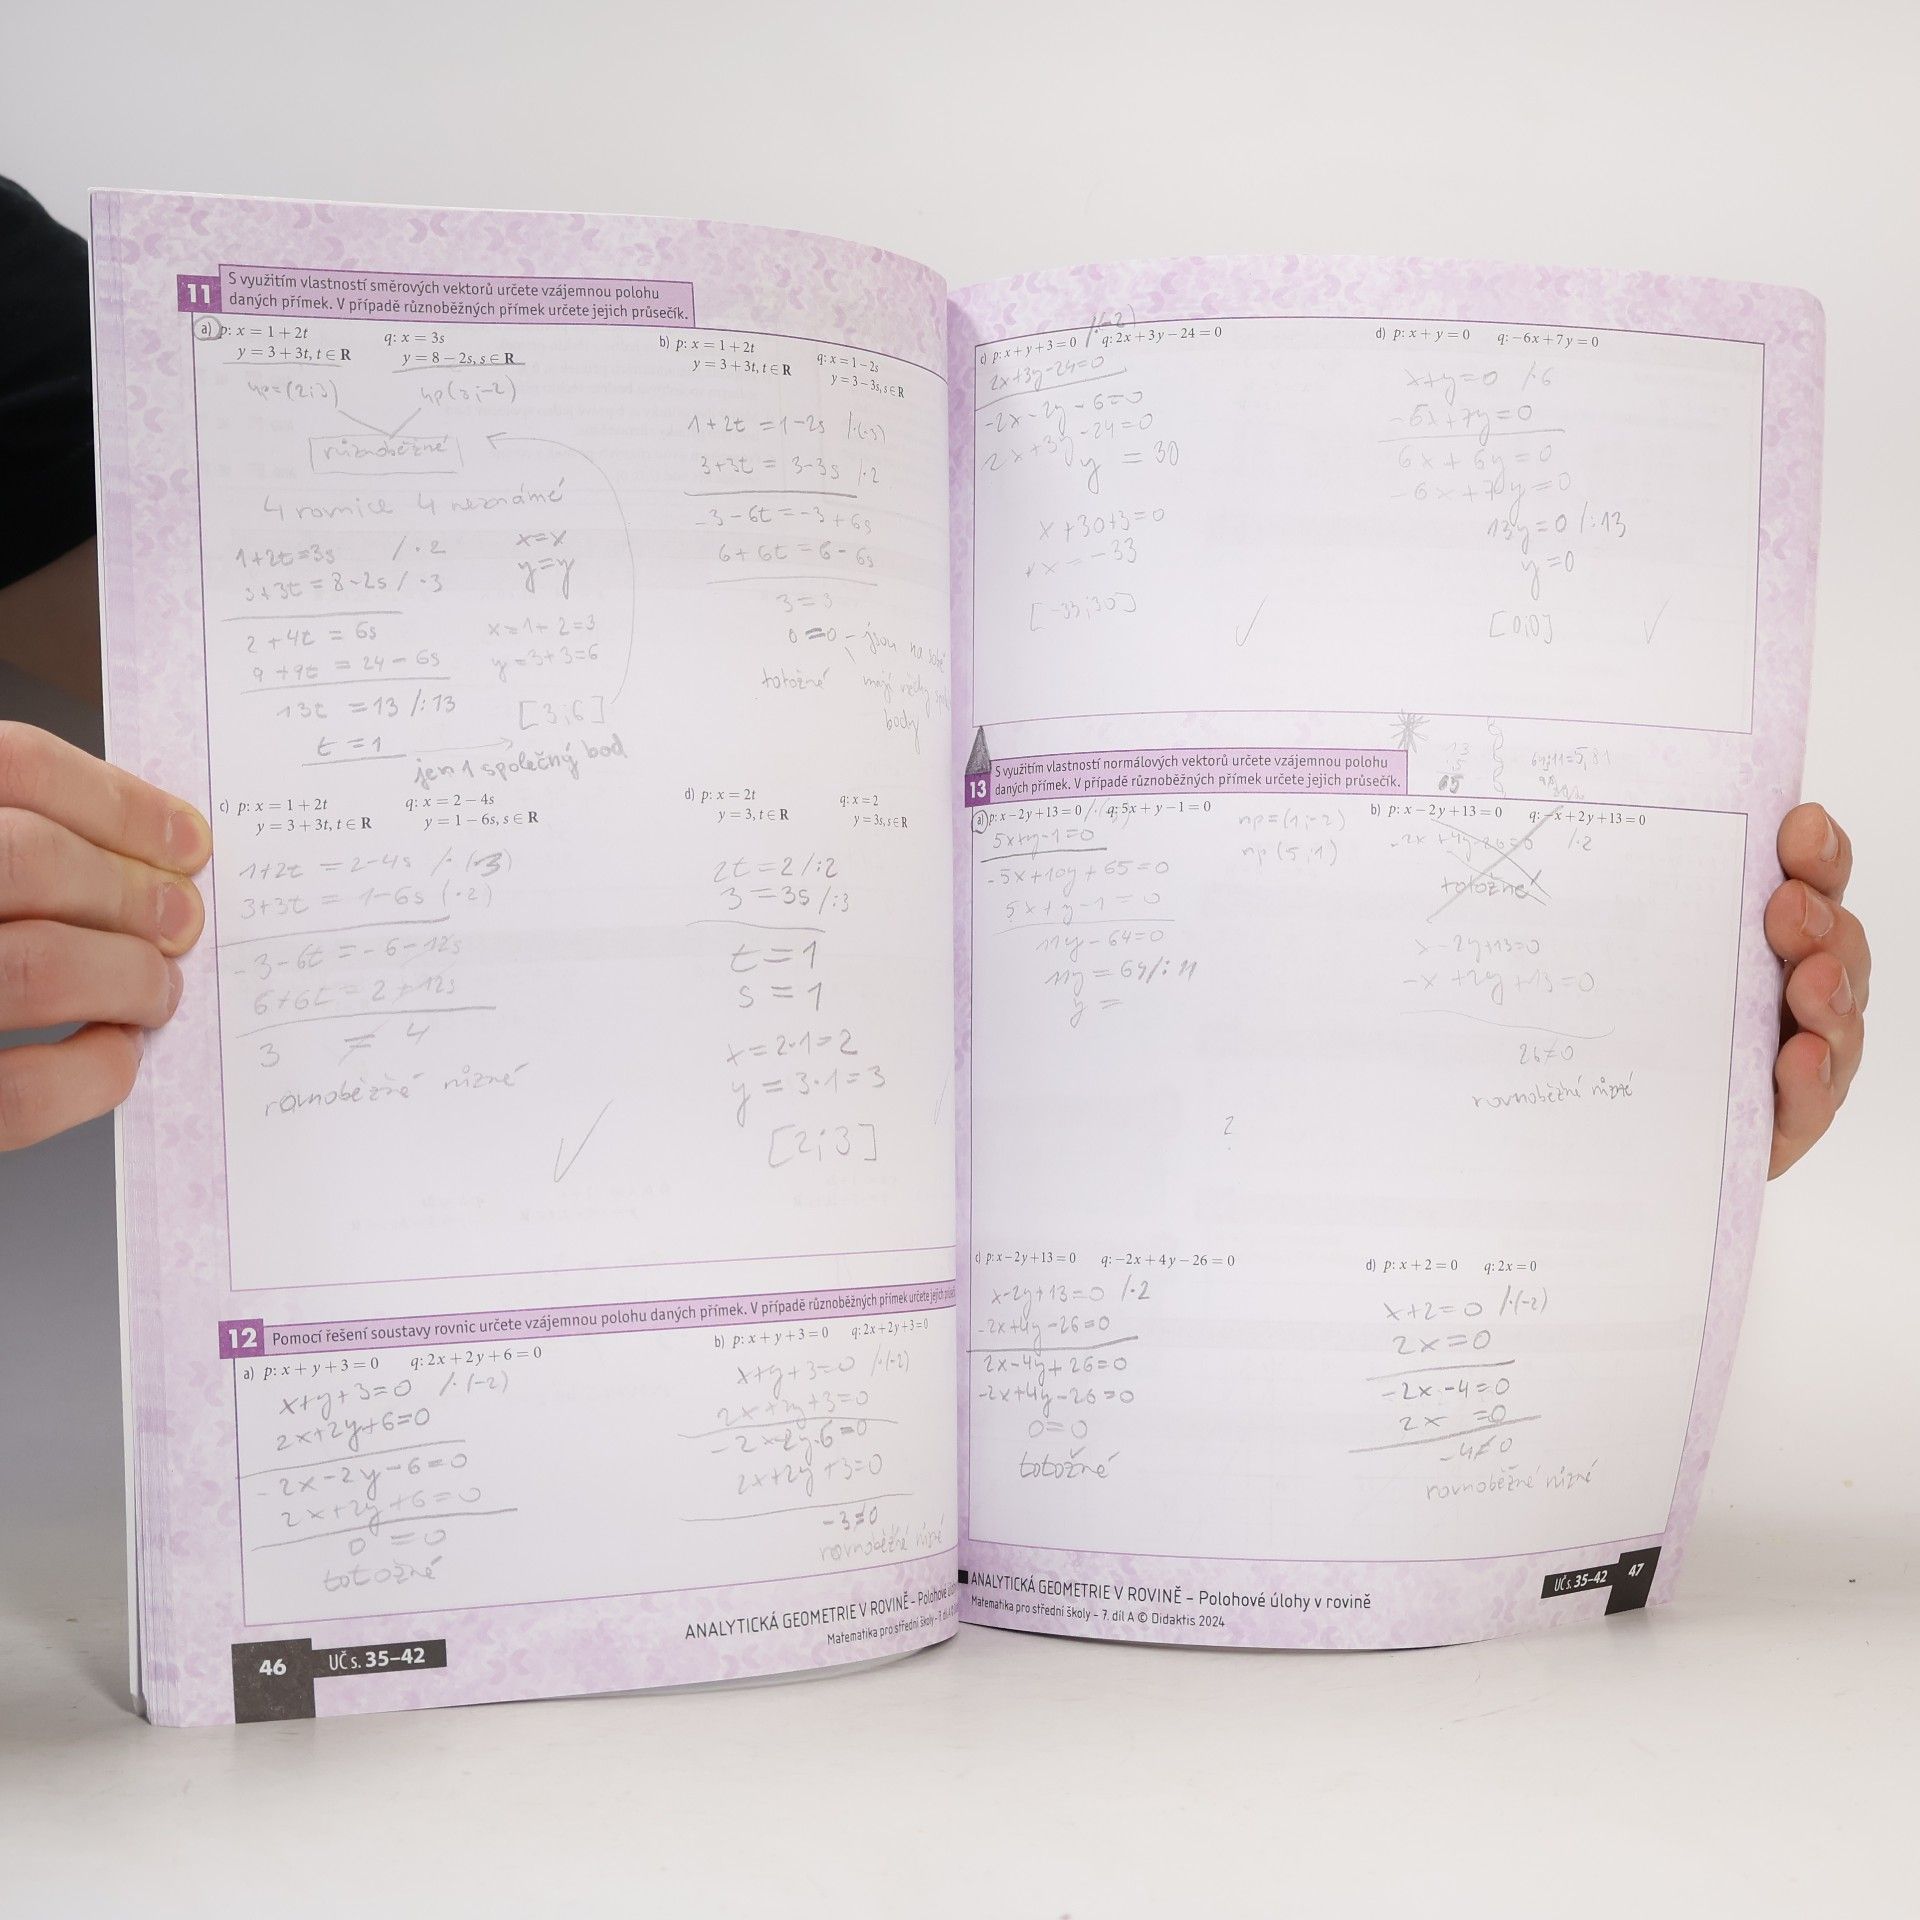 11 S využitím vlastností směrových vektorů určete vzájemnou polohu
daných přímek. V případě různoběžných přímek určete jejich průsečík.
a) p: x = 1 + 2t q: x = 3s
y = 3 + 3t, t ∈ R y = 8 – 2s, s ∈ R
(2;3)
různoběžné
4 rovnice 4 neznámé
1+2t=3s /·2
3+3t=8-2s /·3
x=x
y=y
2+4t=6s
9+9t=24-6s
13t=13 /:13
t=1
x=1+2=3
y=3+3=6
[3;6]
jen 1 společný bod
b) p: x = 1 + 2t q: x = 1 – 2s
y = 3 + 3t, t ∈ R y = 3 – 3s, s ∈ R
1+2t=1-2s /·(-3)
3+3t=3-3s /·2
-3-6t=-3+6s
6+6t=6-6s
3=3
0=0 – jsou na sobě
totožné mají vždy
body
c) p: x = 1 + 2t q: x = 2 – 4s
y = 3 + 3t, t ∈ R y = 1 – 6s, s ∈ R
1+2t=2-4s /·(-3)
3+3t=1-6s (·2)
-3-6t=-6-12s
6+6t=2+12s
3≠4
rovnoběžné různé
d) p: x = 2t q: x = 2
y = 3, t ∈ R y = 3s, s ∈ R
2t=2 /:2
3=3s /:3
t=1
s=1
x=2·1=2
y=3·1=3
[2;3]
12 Pomocí řešení soustavy rovnic určete vzájemnou polohu daných přímek. V případě různoběžných přímek určete jejich
a) p: x + y + 3 = 0 q: 2x + 2y + 6 = 0
x+y+3=0 /·(-2)
2x+2y+6=0
-2x-2y-6=0
2x+2y+6=0
0=0
totožné
b) p: x + y + 3 = 0 q: 2x + 2y + 3 = 0
x+y+3=0 /·(-2)
2x+2y+3=0
-2x-2y-6=0
2x+2y+3=0
-3≠0
rovnoběžné různé
ANALYTICKÁ GEOMETRIE V ROVINĚ – Polohové
Matematika pro střední školy – 7. díl A
46 UČ s. 35–42
c) p: x + y + 3 = 0 /·(-2) q: 2x + 3y – 24 = 0
2x+3y-24=0
-2x-2y-6=0
2x+3y-24=0
y=30
x+30+3=0
x=-33
[-33;30]
d) p: x + y = 0 q: –6x + 7y = 0
x+y=0 /·6
-6x+7y=0
6x+6y=0
-6x+7y=0
13y=0 /:13
y=0
[0;0]
13 S využitím vlastností normálových vektorů určete vzájemnou polohu
daných přímek. V případě různoběžných přímek určete jejich průsečík.
65
64:11=5,81
a) p: x – 2y + 13 = 0 q: 5x + y – 1 = 0
5x+y-1=0
np=(1;-2)
np(5;1)
-5x+10y+65=0
5x+y-1=0
11y-64=0
11y=64 /:11
y=
?
b) p: x – 2y + 13 = 0 q: –x + 2y + 13 = 0
-2x+4y-26=0 /·2
totožné
x-2y+13=0
-x+2y+13=0
26≠0
rovnoběžné různé
c) p: x – 2y + 13 = 0 q: –2x + 4y – 26 = 0
x-2y+13=0 /·2
-2x+4y-26=0
2x-4y+26=0
-2x+4y-26=0
0=0
totožné
d) p: x + 2 = 0 q: 2x = 0
x+2=0 /·(-2)
2x=0
-2x-4=0
2x=0
-4≠0
rovnoběžné různé
ANALYTICKÁ GEOMETRIE V ROVINĚ – Polohové úlohy v rovině
Matematika pro střední školy – 7. díl A © Didaktis 2024
UČ s. 35–42 47